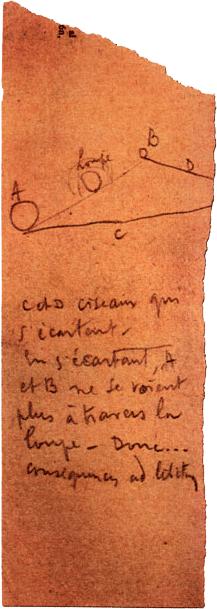 B
D
loupe
A
C
C et D ciseaux qui
s'écartent.
En s'écartant, A
et B ne se voient
plus à travers la
loupe – Donc...
conséquences ad libitum